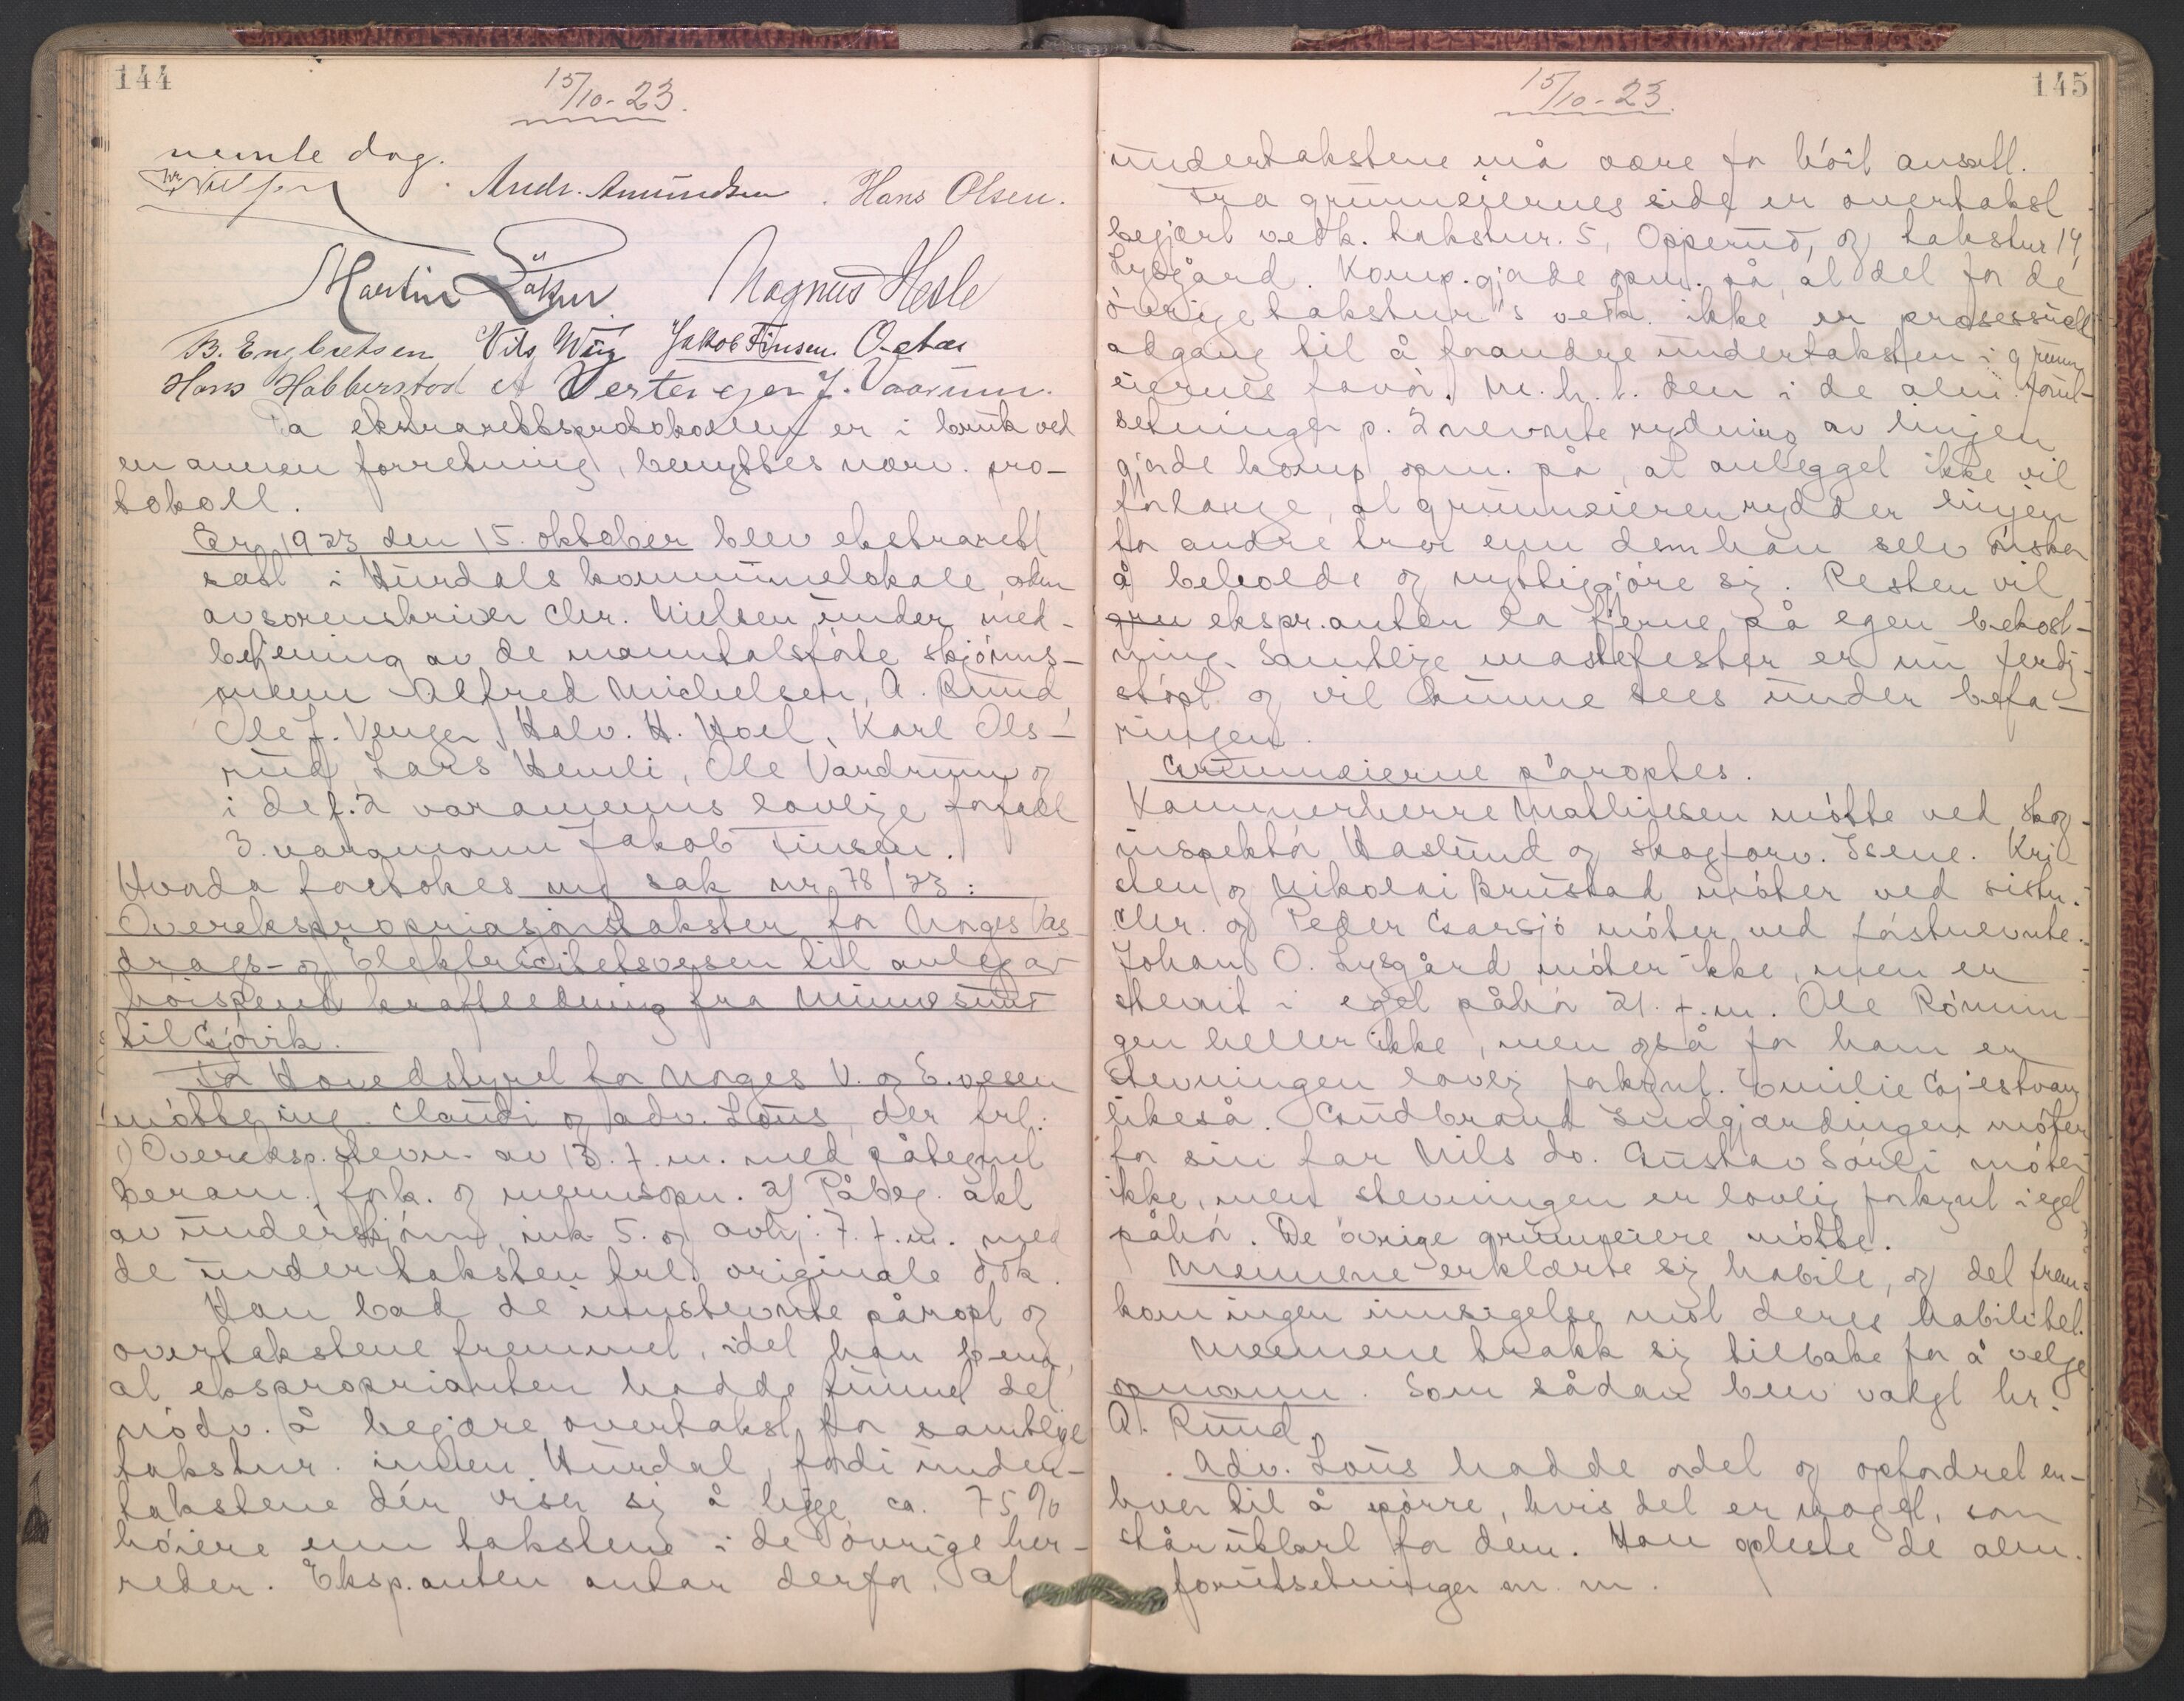 144
15/10-23.
nevnte dag.
Chr Nielsen Andr. Amundsen. Hans Olsen.
Martin Magnus Hesle
B. Engbretsen Nils Wiig Jakob Finsen.
Hans Habberstad J. Vaarum.
Da ekstrarettsprotokollen er i bruk ved
en annen forretning, benyttes nærv. pro-
tokoll.
År 1923 den 15. oktober blev ekstrarett
satt i Hurdals kommunelokale
av sorenskriver Chr. Nielsen under med-
betjening av de manntalsførte skjønns-
menn Alfred Michelsen, A. Ruud,
Ole J. Venger, Halv. H. Hoel, Karl Ols-
rud, Lars Hemli, Ole Værdrum og
i de f. 2 varamenns lovlige forfall
3. varamann Jakob Finsen.
Hvorda foretokes ny sak nr. 78/23:
Overekspropriasjonstakster for Norges Vas-
drags- og Elektricitetsvesen til anlegg av
høispent kraftledning fra Minnesund
til Gjøvik.
For Hovedstyret for Norges V. og E.vesen
møtte ing. Claudi og adv. Lous, der frl.:
1) Overeksp. stevn. av 13. f. m. med påtegnet
beram., fork. og mennsopn. 2) Påbeg. akt
av underskjønn, ink. 5. og avhj. 7. f. m. med
de undertaksten frl. originale dok.
Han bad de innstevnte påropt og
overtakstene fremmet, idet han bem.,
at eksproprianten hadde funnet det
nødv. å begjære overtakst for samtlige
takstnr. innen Hurdal, fordi under-
takstene dér viser sig å ligge ca. 75%
høiere enn takstene i de øvrige her-
reder. Eksp.anten antar derfor, at
145
15/10-23.
undertakstene må være for høit ansatt.
Fra grunneiernes side er overtakst
begjært vedk. takstnr. 5, Opperud, og takstnr 14,
Lysgård. Komp. gjorde opm. på, at det for de
øvrige takstnr's vedk. ikke er prosessuell
adgang til å forandre undertaksten i grunn-
eiernes favør. M. h. t. den i de alm. forut-
setninger p. 2 nevnte rydning av linjen
gjorde komp opm. på, at anlegget ikke vil
forlange, at grunneieren rydder linjen
for andre trær enn dem han selv ønsker
å beholde og nyttiggjøre sig. Resten vil
ekspr.anten la fjerne på egen bekost-
ning. Samtlige mastefester er nu ferdig
støpt og vil kunne sees under befa-
ringen.
Grunneierne påroptes.
Kammerherre Mathiesen møtte ved skog-
inspektør Haslund og skogforv. Isene. Kri-
sten og Nikolai Brustad møter ved sistn.
Chr. og Peder Garsjø møter ved førstnevnte.
Johan O. Lysgård møter ikke, men er
stevnt i eget påhør 21. f. m. Ole Rønnin-
gen heller ikke, men også for ham er
stevningen lovlig forkynt. Emilie Gjestvang
likeså. Gudbrand Sudgjærdingen møter
for sin far Nils do. Gustav Sørli møter
ikke, men stevningen er lovlig forkynt i eget
påhør. De øvrige grunneiere møtte.
Mennene erklærte sig habile, og det frem-
kom ingen innsigelse mot deres habilitet.
Mennene trakk sig tilbake for å velge
opmann. Som sådan blev valgt hr.
A. Ruud.
Adv. Lous hadde ordet og opfordret en-
hver til å spørre, hvis det er noget, som
står uklart for dem. Han opleste de alm.
forutsetninger m. m.